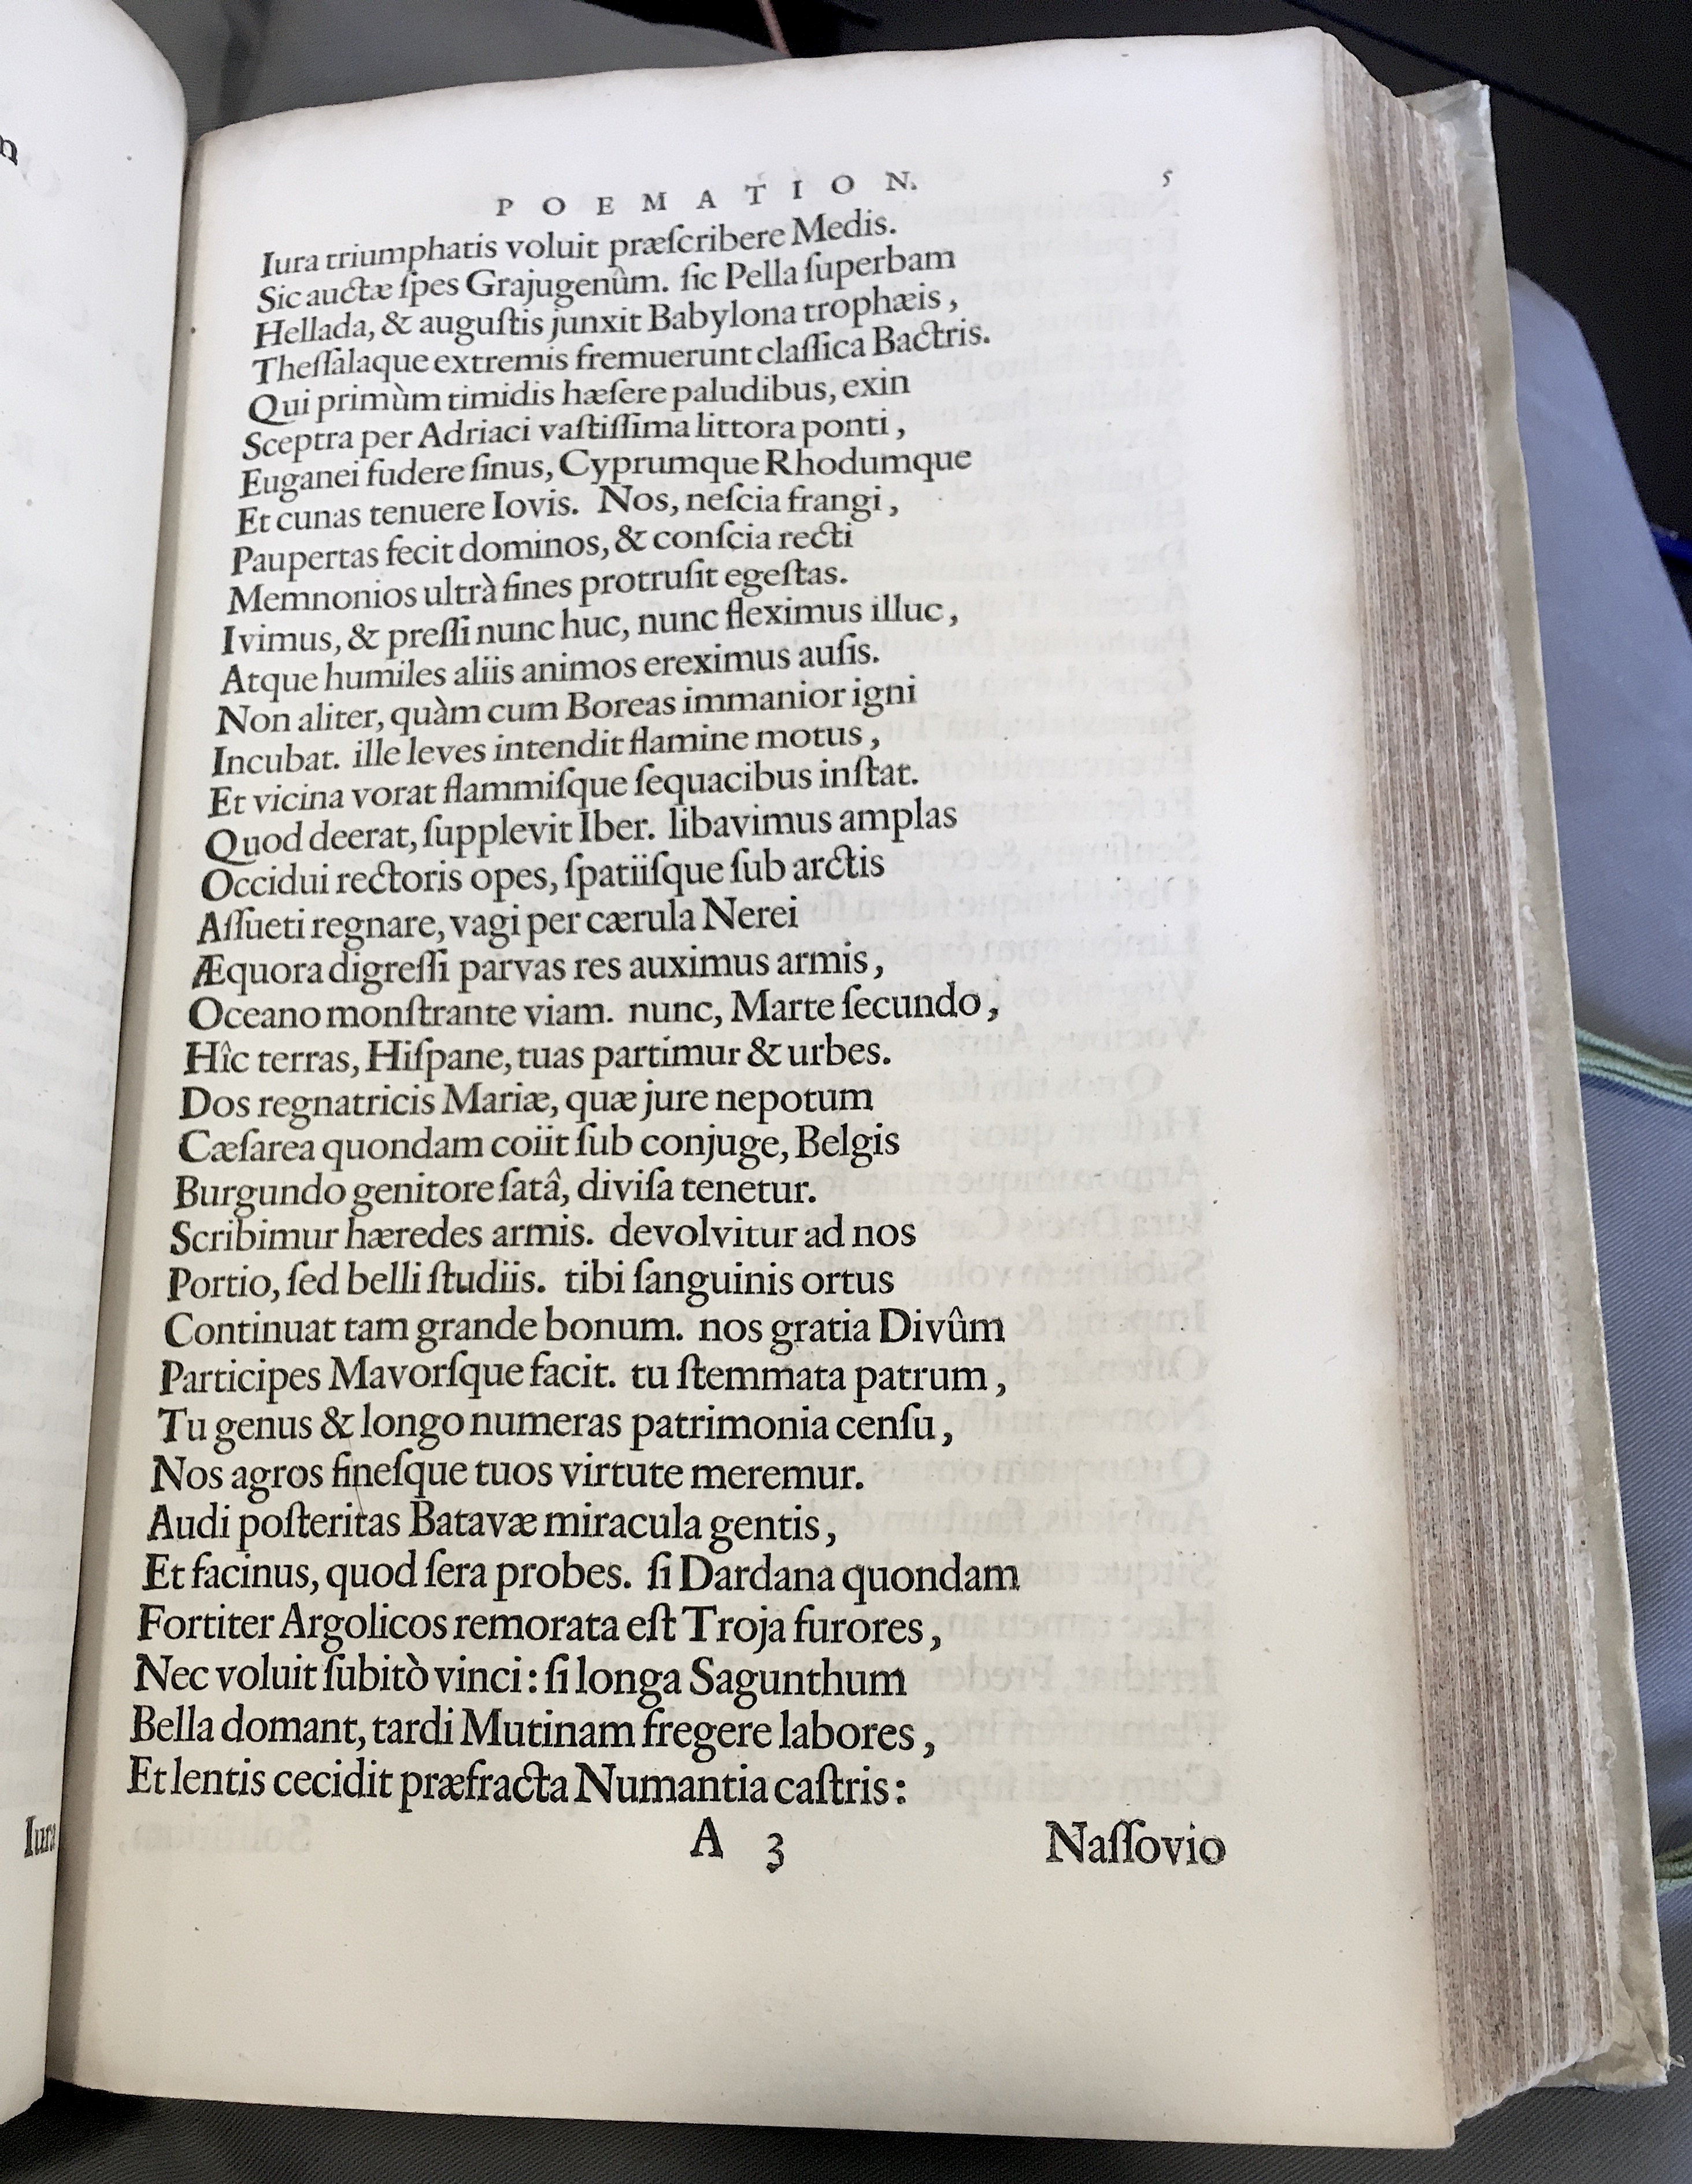 POEMATION. 5
Iura triumphatis voluit præſcribere Medis.
Sic auctæ ſpes Grajugenûm. ſic Pella ſuperbam
Hellada, & auguſtis junxit Babylona trophæis,
Theſſalaque extremis fremuerunt claſſica Bactris.
Qui primùm timidis hæſere paludibus, exin
Sceptra per Adriaci vaſtiſſima littora ponti,
Euganei fudere ſinus, Cyprumque Rhodumque
Et cunas tenuere Iovis. Nos, neſcia frangi,
Paupertas fecit dominos, & conſcia recti
Memnonios ultrà fines protruſit egeſtas.
Ivimus, & preſſi nunc huc, nunc fleximus illuc,
Atque humiles aliis animos ereximus auſis.
Non aliter, quàm cum Boreas immanior igni
Incubat. ille leves intendit flamine motus,
Et vicina vorat flammiſque ſequacibus inſtat.
Quod deerat, ſupplevit Iber. libavimus amplas
Occidui rectoris opes, ſpatiiſque ſub arctis
Aſſueti regnare, vagi per cærula Nerei
Æquora digreſſi parvas res auximus armis,
Oceano monſtrante viam. nunc, Marte ſecundo,
Hîc terras, Hiſpane, tuas partimur & urbes.
Dos regnatricis Mariæ, quæ jure nepotum
Cæſarea quondam coiit ſub conjuge, Belgis
Burgundo genitore ſatâ, diviſa tenetur.
Scribimur hæredes armis. devolvitur ad nos
Portio, ſed belli ſtudiis. tibi ſanguinis ortus
Continuat tam grande bonum. nos gratia Divûm
Participes Mavorſque facit. tu ſtemmata patrum,
Tu genus & longo numeras patrimonia cenſu,
Nos agros fineſque tuos virtute meremur.
Audi poſteritas Batavæ miracula gentis,
Et facinus, quod ſera probes. ſi Dardana quondam
Fortiter Argolicos remorata eſt Troja furores,
Nec voluit ſubitò vinci: ſi longa Sagunthum
Bella domant, tardi Mutinam fregere labores,
Et lentis cecidit præfracta Numantia caſtris:
A 3 Naſſovio